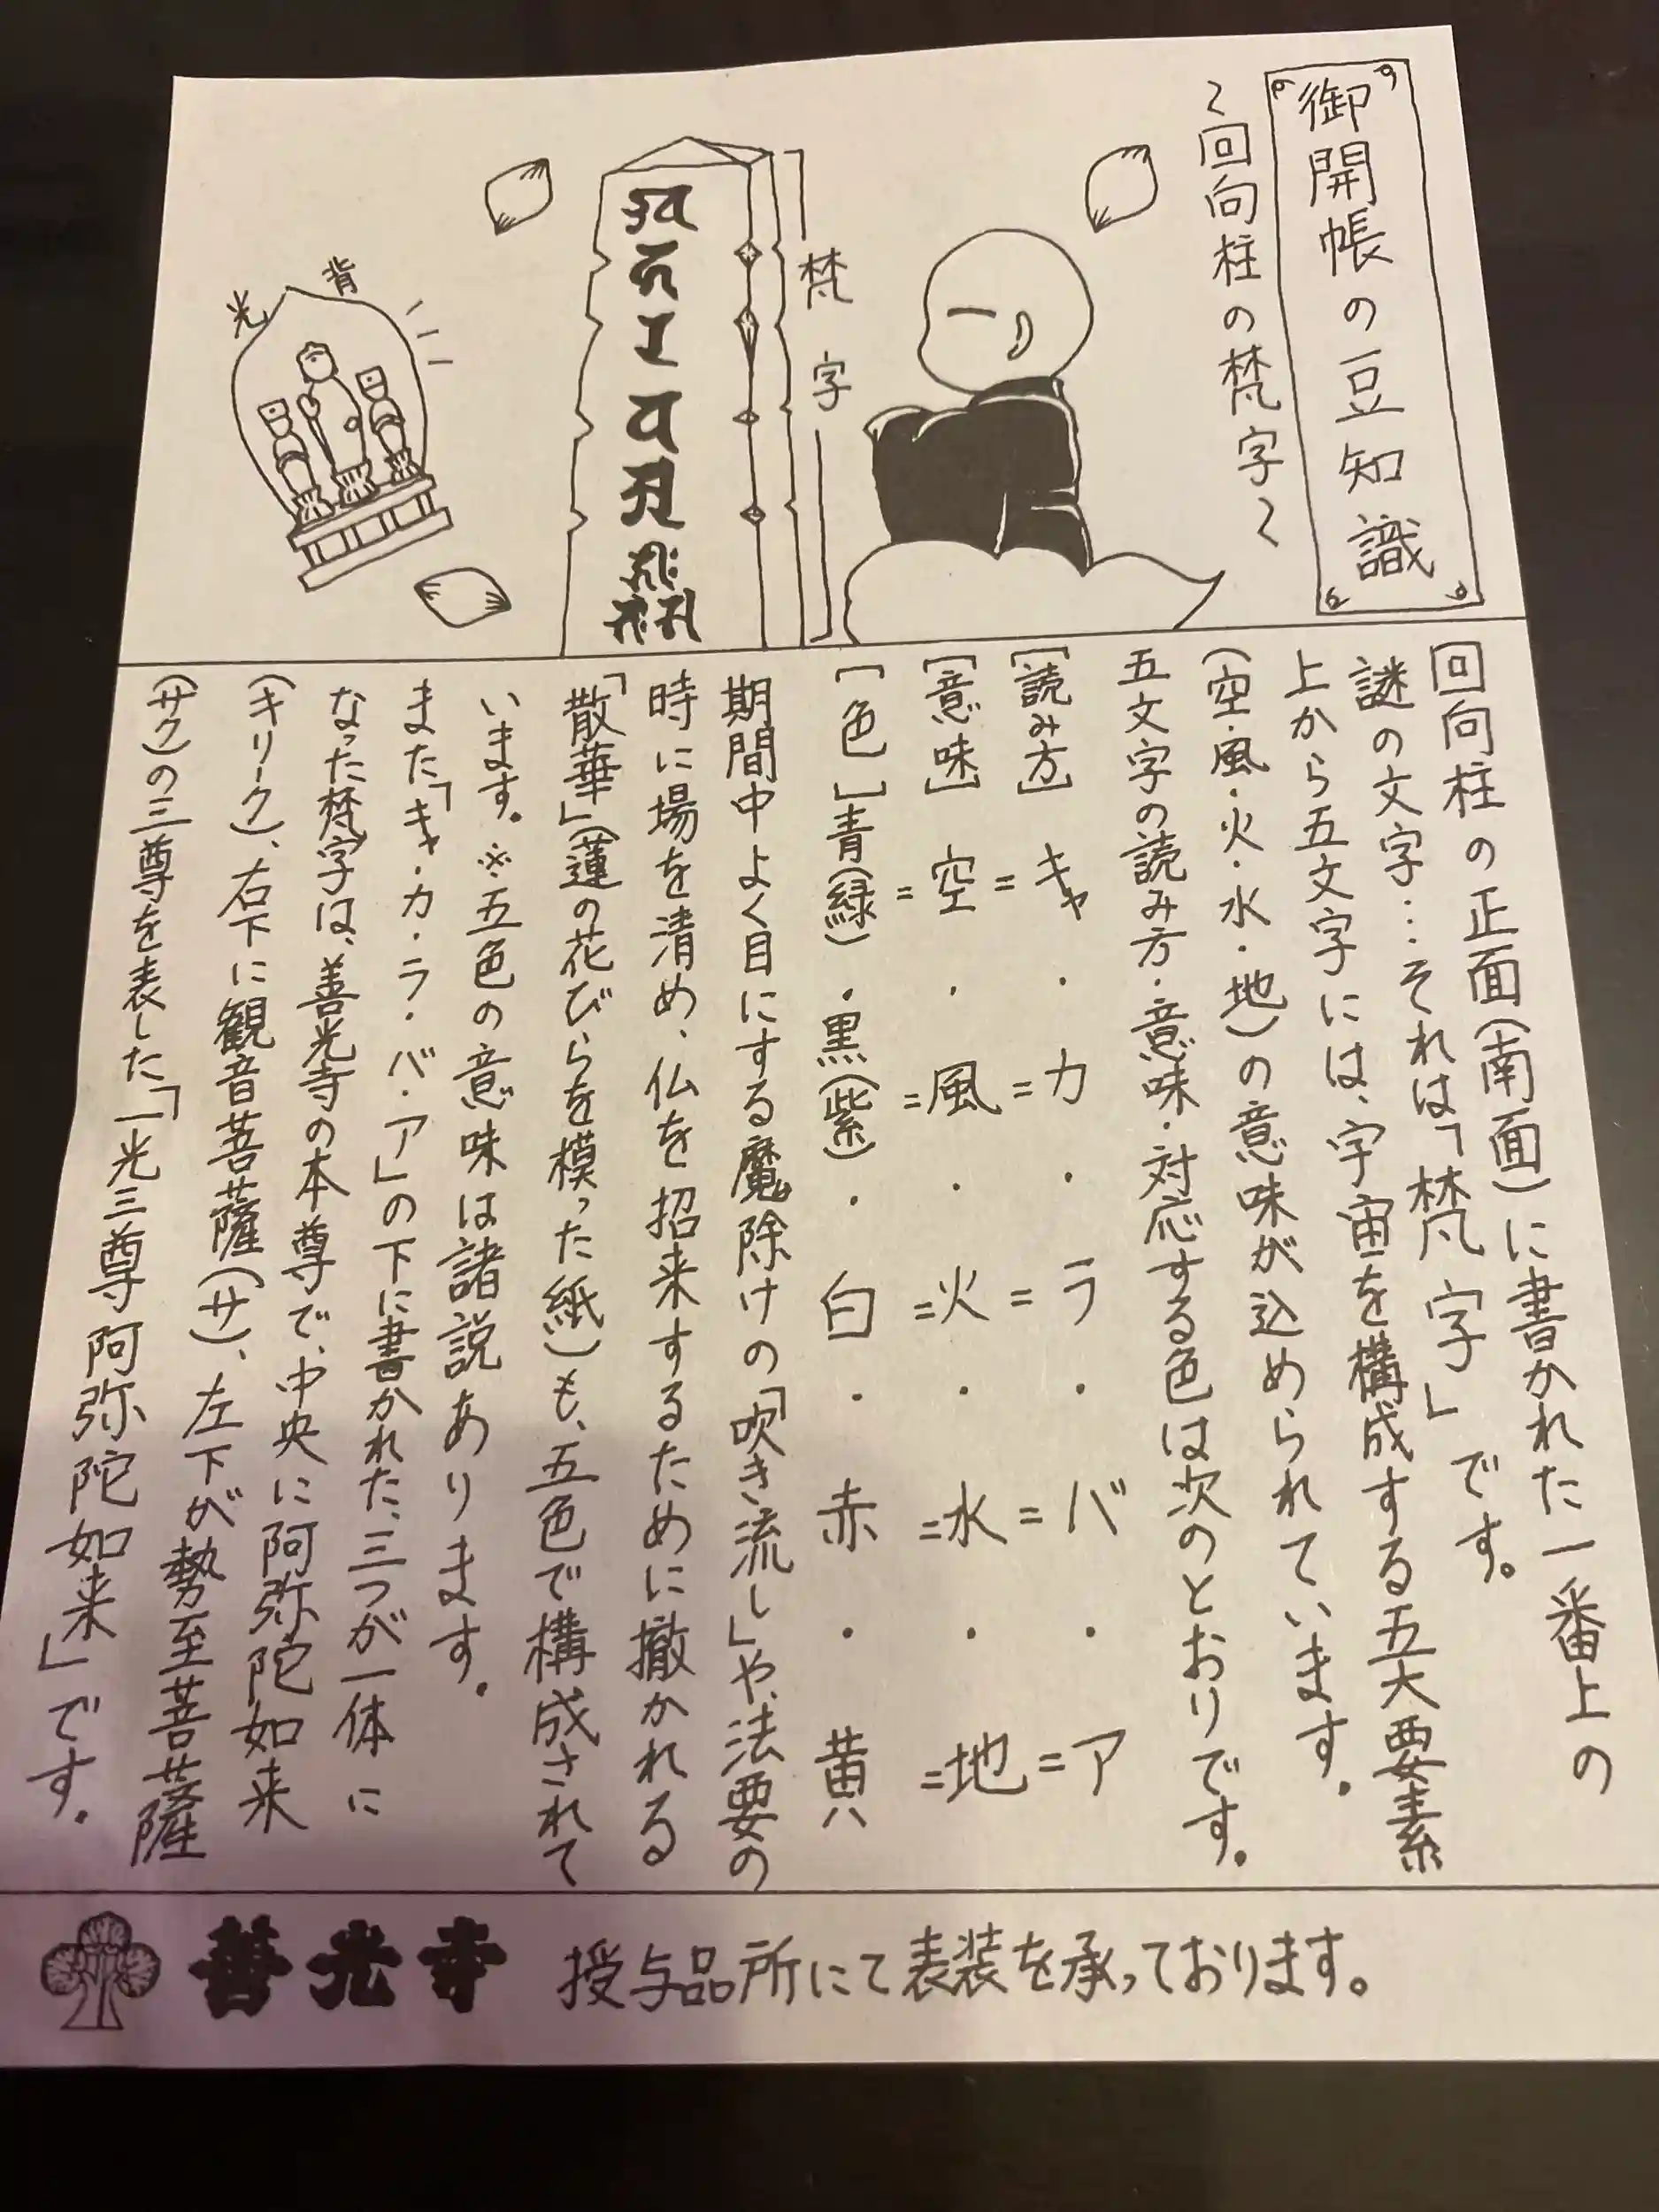 御開帳の豆知識
～回向柱の梵字～
梵字
背光
回向柱の正面(南面)に書かれた一番上の
謎の文字…それは「梵字」です。
上から五文字には、宇宙を構成する五大要素
(空・風・火・水・地)の意味が込められています。
五文字の読み方・意味・対応する色は次のとおりです。
[読み方] キャ・カ・ラ・バ・ア
[意味] 空・風・火・水・地
[色] 青(緑)・黒(紫)・白・赤・黄
期間中よく目にする魔除けの「吹き流し」や、法要の
時に場を清め、仏を招来するために撤かれる
「散華」(蓮の花びらを模った紙)も、五色で構成されて
います。※五色の意味は諸説あります。
また「キャ・カ・ラ・バ・ア」の下に書かれた、三つが一体に
なった梵字は、善光寺の本尊で、中央に阿弥陀如来
(キリーク)、右下に観音菩薩(サ)、左下が勢至菩薩
(サク)の三尊を表した「一光三尊阿弥陀如来」です。
善光寺 授与品所にて表装を承っております。